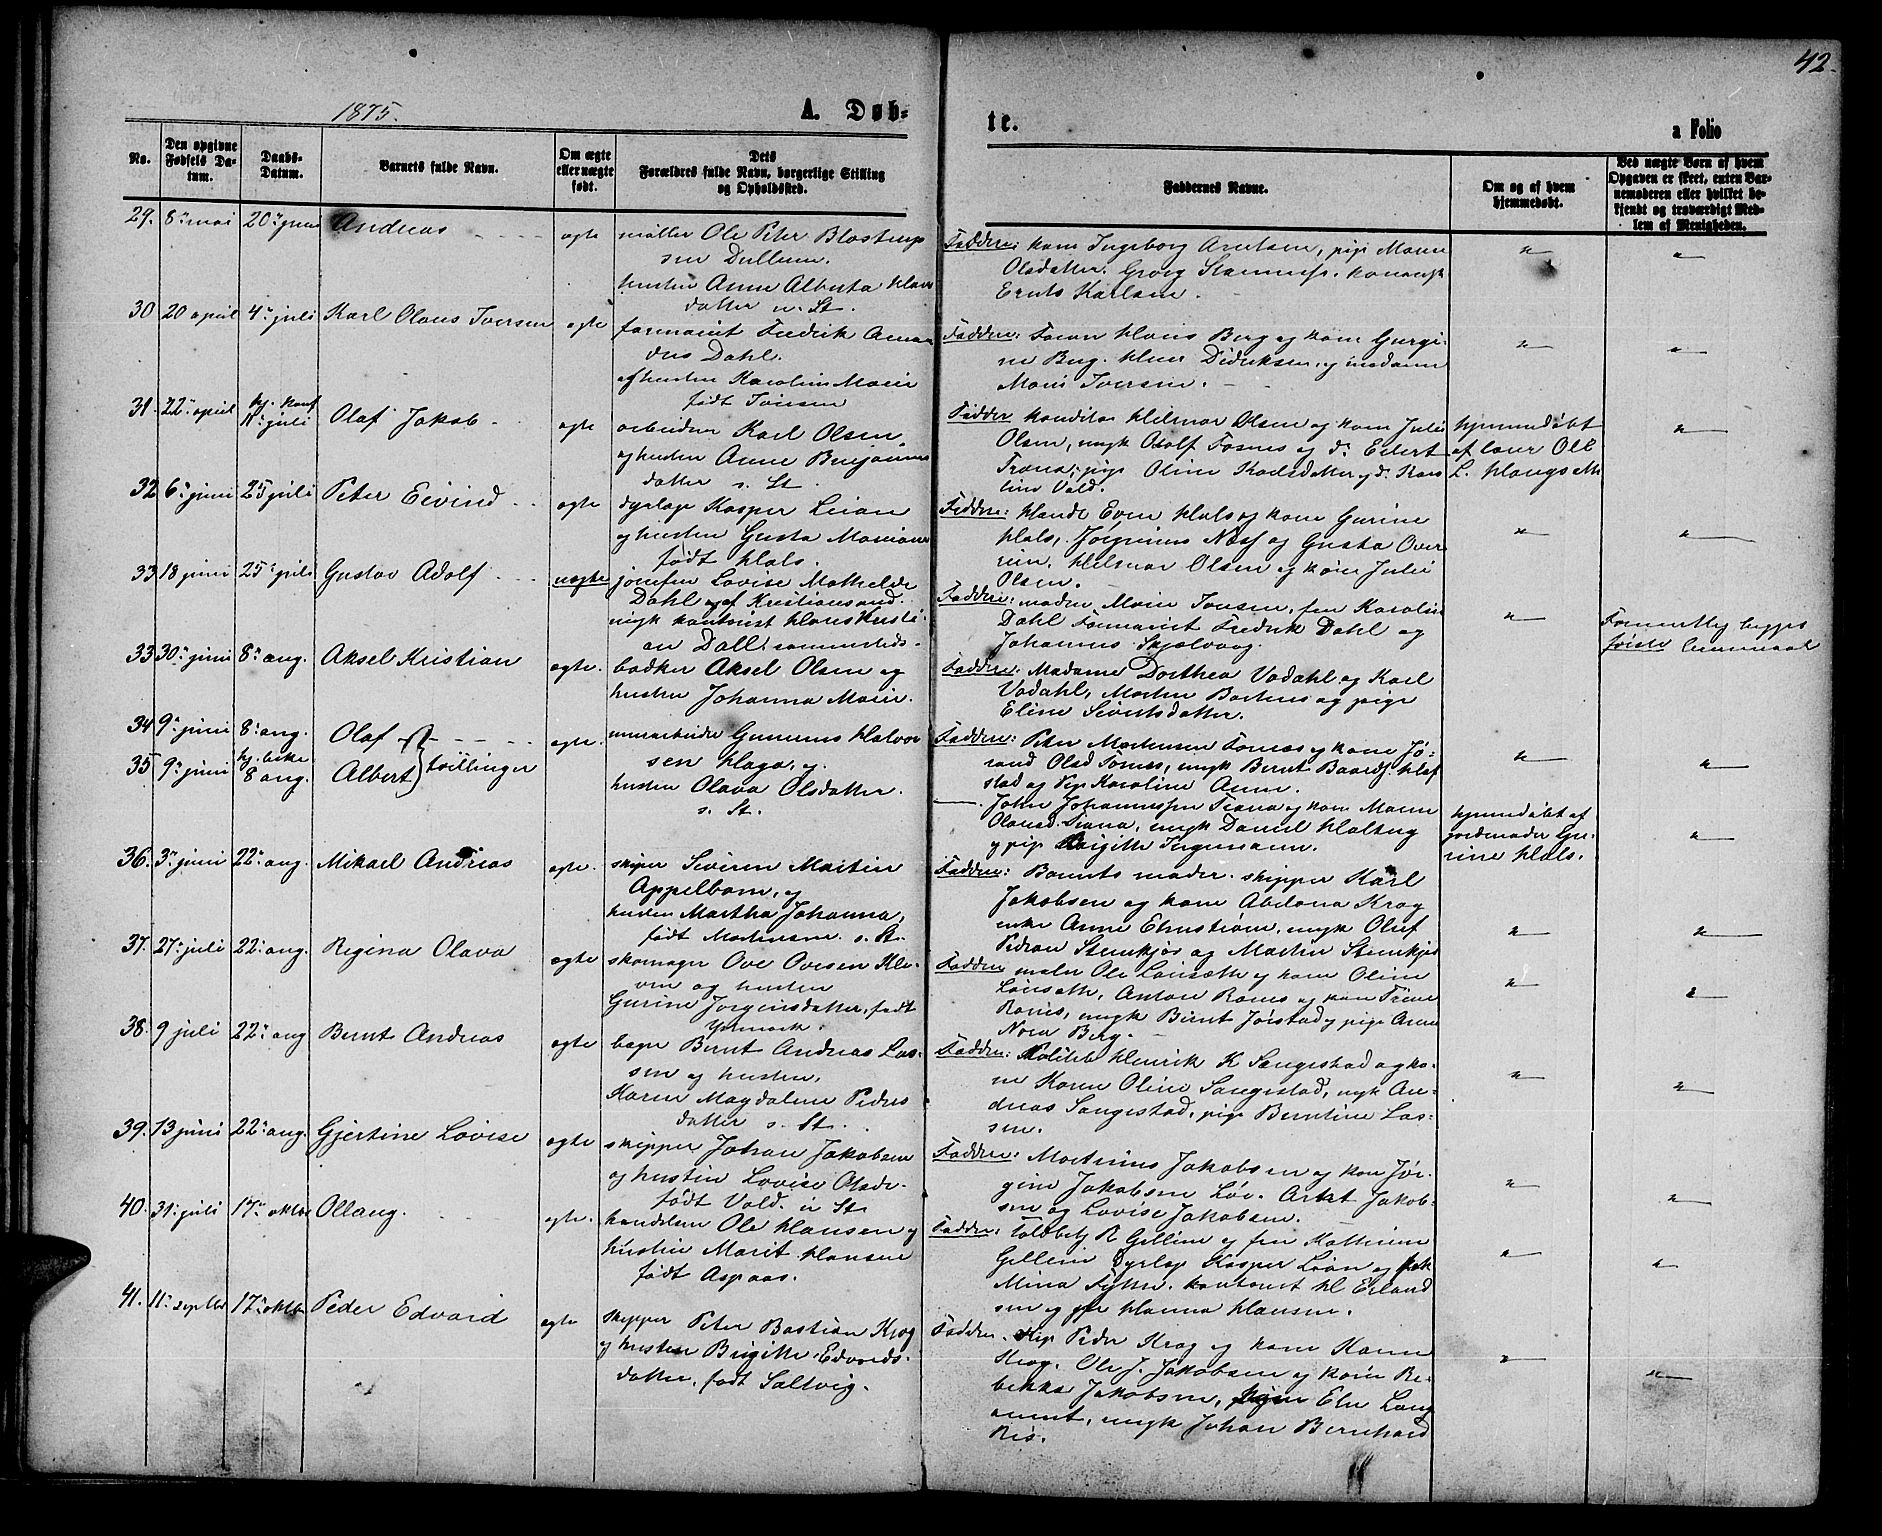 42.
1875.
A. Døb-
te.
a Folio
No.
Den opgivne
Fødsels Da-
tum.
Daabs-
Datum.
Barnets fulde Navn.
Om ægte
eller uægte
født.
Dets
Forældres fulde Navn, borgerlige Stilling
og Opholdssted.
Faddernes Navne.
Om og af hvem
hjemmedøbt.
Ved uægte Børn af hvem
Opgaven er skeet, enten Bar-
nemoderen eller hvilket be-
kjendt og troværdigt Med-
lem af Menigheden.
29. 8de mai 20de juni Andreas ægte
møller Ole Peter
hustru Anne Alberta
datter n. St.
Faddere: kone Ingeborg Arntsen, pige Marie
Olsdatter.
Karlsen.
30 20 april 4de juli Karl Olaus Iversen ægte
farmavist Fredrik
Dahl.
og hustru Karoline Marie
født Iversen
Faddere: Hans Berg og kone
Berg. Didriksen, og madame
Marie Iversen.
31. 22de april
11te juli
Olaf Jakob ægte
arbeider Karl Olsen,
og hustru Anne Benjamins
datter s. St.
Faddere Hilmar Olsen og kone Julie
Olsen, ungk Adolf Fosnes og do. Eilert
Trana; pige Oline Karlsdatter og do.
Vold.
hjemmedøbt
af Ole
L. Haugseth
32 6te juni 25 juli Peter Eivind ægte
dyrlæge Kasper Leian
og hustru Gusta Mariane
født Hals.
Faddere: Handl. Even Hals og kone Gurine
Hals, Jørginus Næss og Gusta Over
rein, Hilmar Olsen og kone Julie
Olsen.
33 18 juni 25de juli Gustav Adolf uægte
josefine Lovise Mathilde
Dahl og af Kristiansund.
ungk kontorist Hans Kristi-
an Dall, sammesteds.
Faddere: moder, Marie Iversen, fru Karoline
Dahl Fredrik Dahl og
Johannes Skjelvaag.
begges
første leiermaal
33 30te juni 8de aug. Aksel Kristian ægte.
bødker Aksel Olsen og
hustru Johanna Marie.
Faddere: Madame Dorthea Vadahl og Karl
Vadahl, Morten Bartnes og pige
Eline Sivertsdatter.
34 9de juni 8de aug. Olaf
35 9de juni 8 aug. Albert
tvillinger
ægte.
murarbeider Gunerius Halvor
sen Haga, og
hustru Olava Olsdatter.
s. St.
Faddere: Peter Mortensen Fornes og kone Jø-
rand Olsd. Fornes, ungk Bernt
stad og Pige Karoline Anne
John Johannessen Trana og kone Maren
Olausd. Trana, ungk Daniel Halteng
og pige Brigitte
hjemmedøbt af
jordmoder Gu-
rine Hals.
36. 3de juni 22de aug. Mikael Andreas ægte.
skipper Severin Martin
Appelbom, og
hustru Martha Johanna,
født Mortensen. s. St.
Faddere: Barnets moder. skipper Karl
Jakobsen og kone Abelona Krog
enke Anne Ehrnstrøm, ungk Oluf
Pedran Stenkjør og Martin Stenkjør
37. 27de juli 22de aug. Regina Olava ægte
skomager Ove Ovesen Kle-
ven og hustru
Gurine Jørginsdatter, født
Faddere maler Ole Lønsæth og kone Oline
Lønseth, Anton Roms og kone Trine
Roms, ungk Bernt Jørstad og pige Anne
Nora Berg.
38. 9 juli 22de aug Bernt Andreas ægte
bager Bernt Andreas Las-
sen og hustru,
Karen Magdalene Peders
datter s. St.
Faddere: Politib. Henrik K Sangestad og ko-
ne Karen Oline Sangestad, ungk An-
dreas Sangestad, pige Berntine Las-
sen.
39. 13 juni 22de aug. Gjertine Lovise ægte
skipper Johan Jakobsen
og hustru Lovise
født Vold. n St.
Faddere: Martinius Jakobsen og kone Jør-
gine Jakobsen Løv. Jakob-
sen og Lovise Jakobsen.
40. 31te juli 17de oktbr Ollaug. ægte.
handelsm Ole Hansen og
hustru Marit Hansen
født Aspaas.
Faddere: Toldbetj R Gellein og fru Kathrine
Gellein Dyrlæge Kasper Leian og frk
Mina kontorist H. Erland
sen og pige Hanna Hansen.
41. 11te septbr 17de oktbr Peder Edvard ægte
skipper Peter Bastian Krog
og hustru Brigitte Edvards-
datter, født Saltvig.
Faddere. Skip Peder Krog og kone Karen
Krog. Ole J. Jakobsen og kone Re-
bekka Jakobsen, Lang
ungk Johan Bernhard